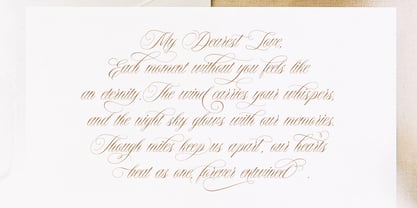 My Dearest Love,
Each moment without you feels like
an eternity. The wind carries your whispers,
and the night sky glows with our memories.
Though miles keep us apart, our hearts
beat as one, forever entwined.